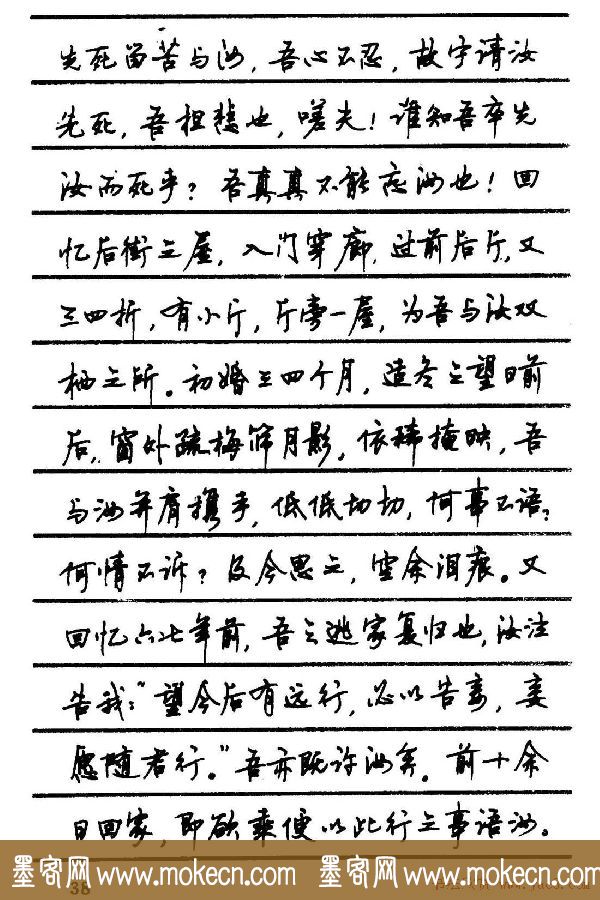 先死留苦与汝，吾心不忍，故宁请汝
先死，吾担悲也，嗟夫！谁知吾卒先
汝而死乎？吾真真不能忘汝也！回
忆后街之屋，入门穿廊，过前后厅，又
三四折，有小厅，厅旁一屋，为吾与汝双
栖之所。初婚三四个月，适冬之望日前
后，窗外疏梅筛月影，依稀掩映，吾
与汝并肩携手，低低切切，何事不语？
何情不诉？及今思之，空余泪痕。又
回忆六七年前，吾之逃家复归也，汝泣
告我：“望今后有远行，必以告妾，妾
愿随君行。”吾亦既许汝矣。前十余
日回家，即欲乘便以此行之事语汝。
墨客网 www.mokecn.com 墨客网 www.mokecn.com
38